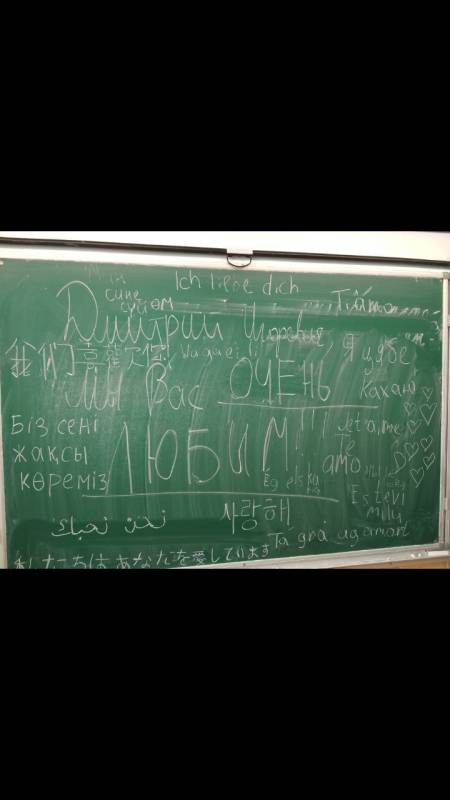 Ich liebe dich
сине
сүйөм
Ti amo
Дмитрий Игоревич
我们喜欢你
Мы Вас ОЧЕНЬ
Кахаю
Біз сені
жақсы
көреміз
ЛЮБИМ!!!
Je t'aime
Te
amo
Ég elska
þig
Es tevi
mīlu
نحن نحبك
사랑해
Tá grá agam ort
私たちはあなたを愛しています